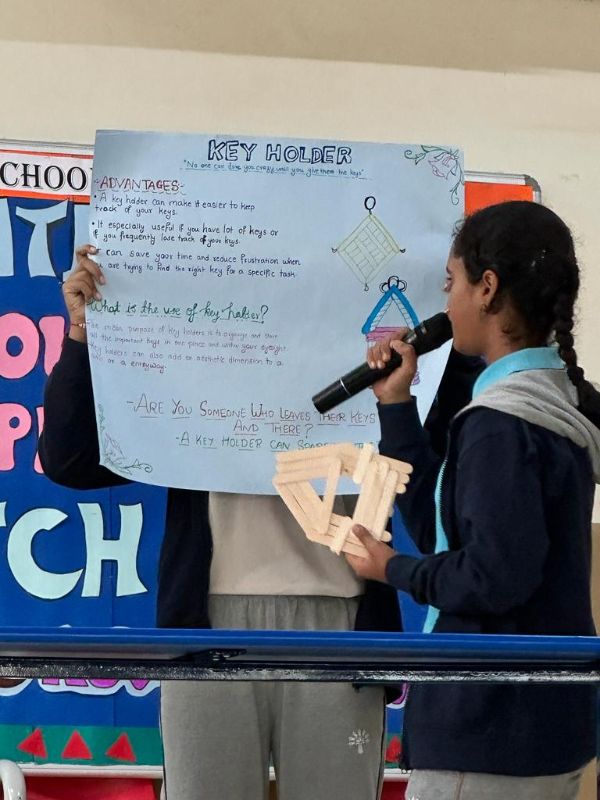 SCHOO
KEY HOLDER
"No one can drive you crazy until you give them the keys"
-ADVANTAGES-
• A key holder can make it easier to keep
track of your keys.
• It especially useful if you have lot of keys or
if you frequently lose track of your keys.
can save your time and reduce frustration when
are trying to find the right key for a specific task.
What is the use of key holder?
The main purpose of key holders is to organize and store
all the important keys in one place and within your eyesight
key holders can also add an aesthetic dimension to a
or a entryway.
-ARE YOU SOMEONE WHO LEAVES THEIR KEYS
AND THERE?
-A KEY HOLDER CAN
TCH